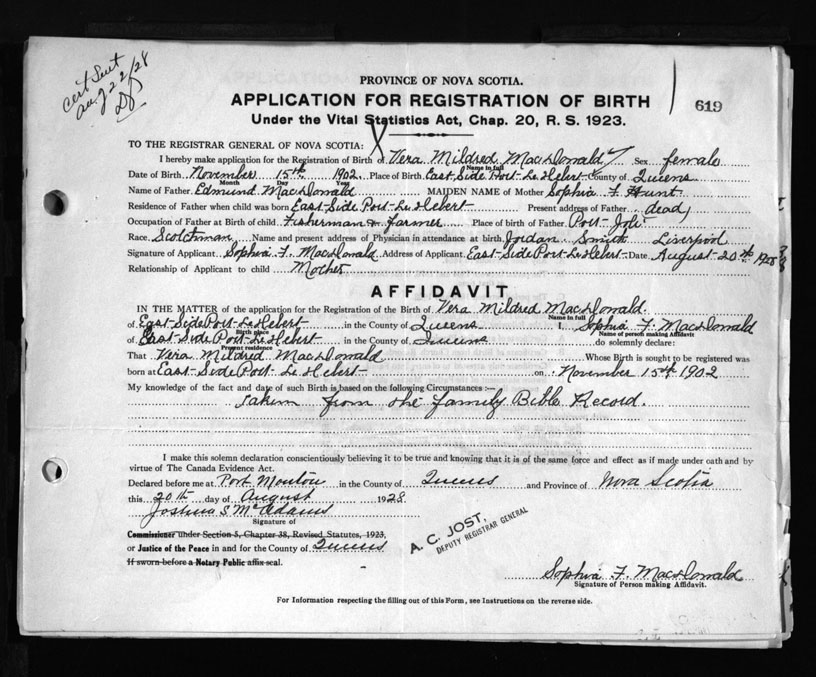 cert Sent
Aug 22/28
PROVINCE OF NOVA SCOTIA.
APPLICATION FOR REGISTRATION OF BIRTH
619
Under the Vital Statistics Act, Chap. 20, R. S. 1923.
TO THE REGISTRAR GENERAL OF NOVA SCOTIA:
I hereby make application for the Registration of Birth of Vera Mildred MacDonald Sex female
Name in full
Date of Birth November 15th 1902. Place of Birth East Side Port Le Hebert County of Queens
Month Day Year
Name of Father Edmund MacDonald MAIDEN NAME of Mother Sophia F Hunt
Residence of Father when child was born East Side Port Le Hebert Present address of Father dead
Occupation of Father at Birth of child Fisherman & farmer Place of birth of Father Port Joli
Race Scotchman Name and present address of Physician in attendance at birth Jordan Smith Liverpool
Signature of Applicant Sophia F. MacDonald Address of Applicant East Side Port Le Hebert Date August 20th 1928
Relationship of Applicant to child Mother
AFFIDAVIT
IN THE MATTER of the application for the Registration of the Birth of Vera Mildred MacDonald
Name in full
of East Side Port Le Hebert in the County of Queens I, Sophia F. MacDonald
Birth place Name of person making Affidavit
of East Side Port Le Hebert in the County of Queens do solemnly declare:
Present residence
That Vera Mildred MacDonald Whose Birth is sought to be registered was
born at East Side Port Le Hebert on November 15th 1902
My knowledge of the fact and date of such Birth is based on the following Circumstances :—
Taken from the family Bible Record.
I make this solemn declaration conscientiously believing it to be true and knowing that it is of the same force and effect as if made under oath and by
virtue of The Canada Evidence Act.
Declared before me at Port Mouton in the County of Queens and Province of Nova Scotia
this 20th day of August 1928
Joshua S McAdams
Signature of
Commissioner under Section 5, Chapter 38, Revised Statutes, 1923,
or Justice of the Peace in and for the County of Queens
If sworn before a Notary Public affix seal.
A. C. JOST,
DEPUTY REGISTRAR GENERAL
Sophia F. MacDonald
Signature of Person making Affidavit.
For Information respecting the filling out of this Form, see Instructions on the reverse side.